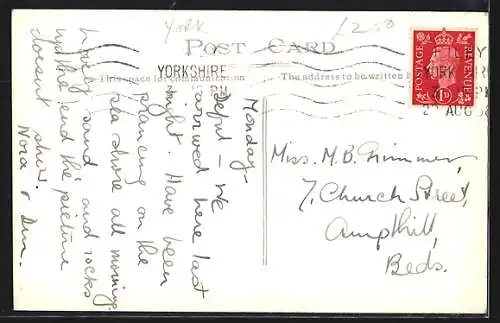 York
£2.50
POST CARD
YORKSHIRE
This space for communication
The address to be written
POSTAGE
REVENUE
1D
YORK
AUG
Monday -
Deput - We
arrived here last
night. Have been
plancing on the
sea shore all morning.
Lovely sand and rocks
and the end the picture
doesnt show.
Nora &
Miss. M. B. Grimmer,
7, Church Street,
Ampthill,
Beds.